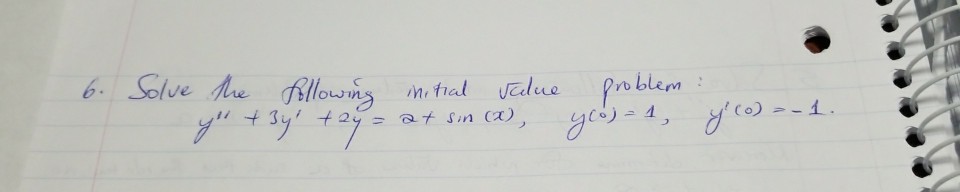 6. Solve the following initial value problem :
y'' + 3y' + 2y = 2+ sin (x), y(0) = 1, y'(0) = -1.